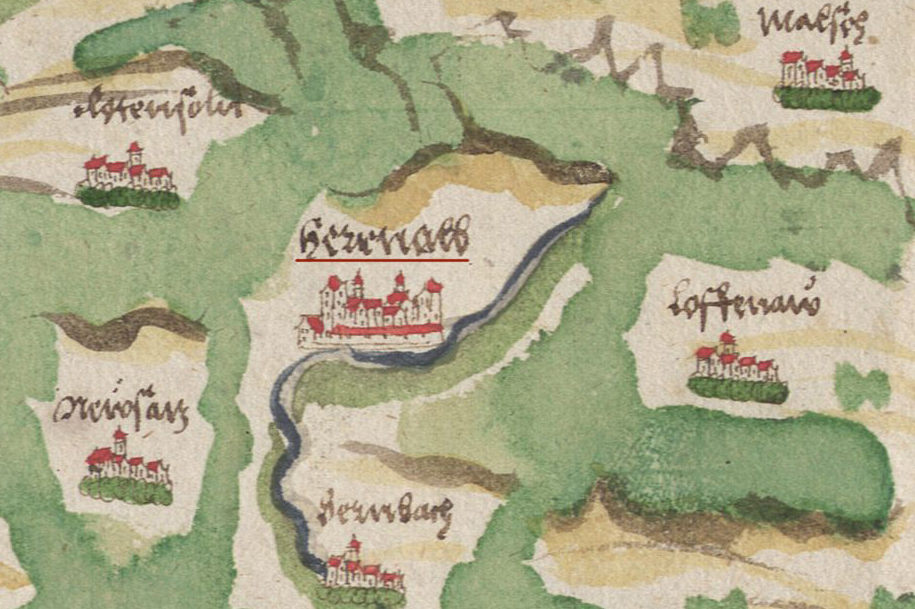 Malsch
Rotensoln
Herrenalb
Loffenaw
Newsatz
Bernbach